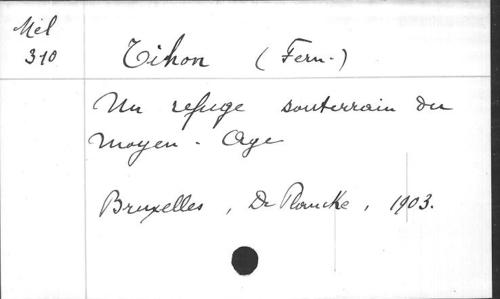 Mél
310
Tihon (Fern.)
Un refuge souterrain du
moyen-Age
Bruxelles, De Plancke, 1903.